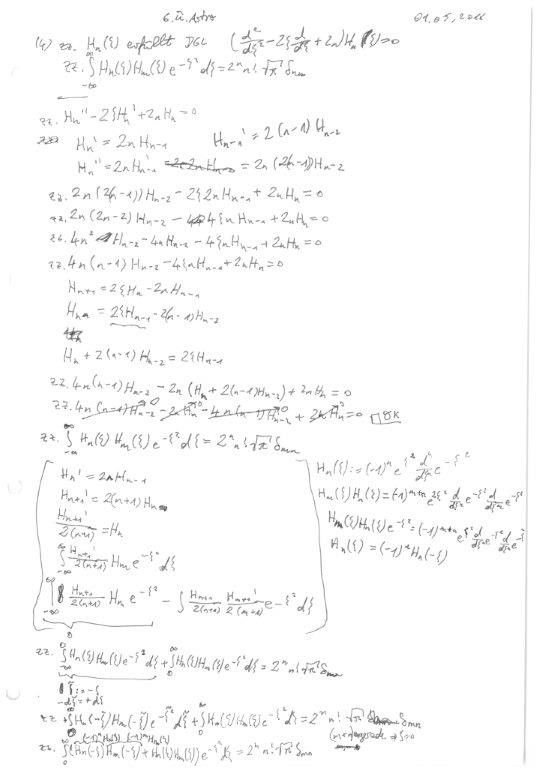 6. Ü. Astro 01.05.2011
(4) zz. Hₙ(ξ) erfüllt DGL (d²/dξ² - 2ξ d/dξ + 2n) Hₙ(ξ) = 0
zz. ∫_{-∞}^{∞} Hₙ(ξ) Hₘ(ξ) e^{-ξ²} dξ = 2ⁿ n! √π δₙₘ
zz. Hₙ'' - 2ξHₙ' + 2nHₙ = 0
Hₙ' = 2n Hₙ₋₁ Hₙ₋₁' = 2(n-1) Hₙ₋₂
Hₙ'' = 2n Hₙ₋₁' = 2n (2(n-1)) Hₙ₋₂
zz. 2n (2(n-1)) Hₙ₋₂ - 2ξ 2n Hₙ₋₁ + 2n Hₙ = 0
zz. 2n (2n-2) Hₙ₋₂ - 4ξn Hₙ₋₁ + 2n Hₙ = 0
zz. 4n² Hₙ₋₂ - 4n Hₙ₋₂ - 4ξn Hₙ₋₁ + 2n Hₙ = 0
zz. 4n (n-1) Hₙ₋₂ - 4ξn Hₙ₋₁ + 2n Hₙ = 0
Hₙ₊₁ = 2ξHₙ - 2n Hₙ₋₁
Hₙ = 2ξHₙ₋₁ - 2(n-1) Hₙ₋₂
Hₙ + 2(n-1) Hₙ₋₂ = 2ξHₙ₋₁
zz. 4n (n-1) Hₙ₋₂ - 2n (Hₙ + 2(n-1) Hₙ₋₂) + 2n Hₙ = 0
zz. 4n (n-1) Hₙ₋₂ - 2n Hₙ - 4n (n-1) Hₙ₋₂ + 2n Hₙ = 0 OK
zz. ∫_{-∞}^{∞} Hₙ(ξ) Hₘ(ξ) e^{-ξ²} dξ = 2ⁿ n! √π δₘₙ
Hₙ' = 2n Hₙ₋₁
Hₙ₊₁' = 2(n+1) Hₙ
Hₙ₊₁' / 2(n+1) = Hₙ
∫_{-∞}^{∞} Hₙ₊₁' / 2(n+1) Hₘ e^{-ξ²} dξ
Hₙ₊₁ / 2(n+1) Hₘ e^{-ξ²} - ∫ Hₙ₊₁ / 2(n+1) Hₘ₊₁' / 2(m+1) e^{-ξ²} dξ
Hₙ(ξ) := (-1)ⁿ e^{ξ²} dⁿ/dξⁿ e^{-ξ²}
Hₘ(ξ) Hₙ(ξ) = (-1)^{m+n} e^{2ξ²} d/dξᵐ e^{-ξ²} d/dξⁿ e^{-ξ²}
Hₘ(ξ) Hₙ(ξ) e^{-ξ²} = (-1)^{m+n} e^{ξ²} d/dξᵐ e^{-ξ²} d/dξⁿ e^{-ξ²}
Hₙ(ξ) = (-1)ⁿ Hₙ(-ξ)
zz. ∫_{-∞}^{0} Hₙ(ξ) Hₘ(ξ) e^{-ξ²} dξ + ∫_{0}^{∞} Hₙ(ξ) Hₘ(ξ) e^{-ξ²} dξ = 2ⁿ n! √π δₘₙ
ξ̃ := -ξ
-dξ̃ = +dξ
zz. +∫ Hₙ(-ξ̃) Hₘ(-ξ̃) e^{-ξ̃²} dξ̃ + ∫_{0}^{∞} Hₙ(ξ) Hₘ(ξ) e^{-ξ²} dξ = 2ⁿ n! √π δₘₙ
zz. ∫_{0}^{∞} (Hₙ(-ξ) Hₘ(-ξ) + Hₙ(ξ) Hₘ(ξ)) e^{-ξ²} dξ = 2ⁿ n! √π δₘₙ